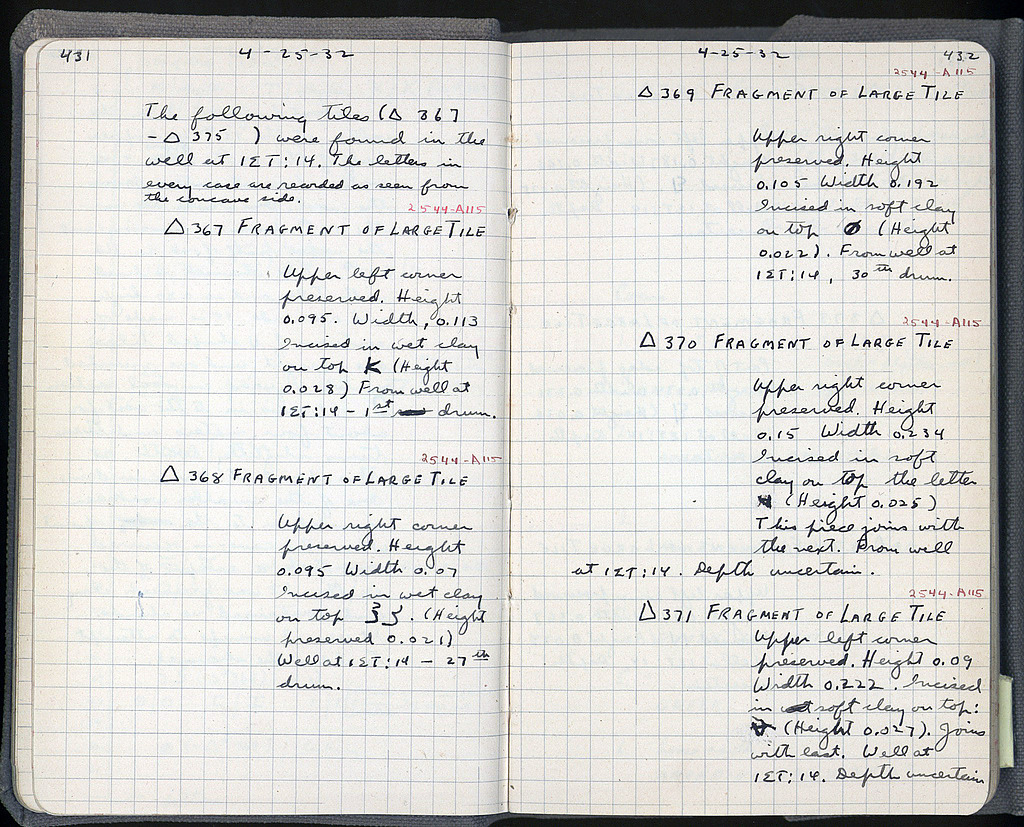 431
4-25-32
The following tiles (Δ 367
- Δ 375 ) were found in the
well at 1ΣΤ:14. The letters in
every case are recorded as seen from
the concave side.
2544-A115
Δ 367 FRAGMENT OF LARGE TILE
Upper left corner
preserved. Height
0.095. Width, 0.113
Incised in wet clay
on top K (Height
0.028) From well at
1ΣΤ:14 - 1st drum.
2544-A115
Δ 368 FRAGMENT OF LARGE TILE
Upper right corner
preserved. Height
0.095 Width 0.07
Incised in wet clay
on top . (Height
preserved 0.021)
Well at 1ΣΤ:14 - 27th
drum.
4-25-32
432
2544-A115
Δ 369 FRAGMENT OF LARGE TILE
Upper right corner
preserved. Height
0.105 Width 0.192
Incised in soft clay
on top (Height
0.022). From well at
1ΣΤ:14, 30th drum.
2544-A115
Δ 370 FRAGMENT OF LARGE TILE
Upper right corner
preserved. Height
0.15 Width 0.234
Incised in soft
clay on top the letter
(Height 0.025)
This piece joins with
the next. From well
at 1ΣΤ:14. Depth uncertain.
2544-A115
Δ 371 FRAGMENT OF LARGE TILE
Upper left corner
preserved. Height 0.09
Width 0.222. Incised
in soft clay on top:
(Height 0.027). Joins
with last. Well at
1ΣΤ:14. Depth uncertain